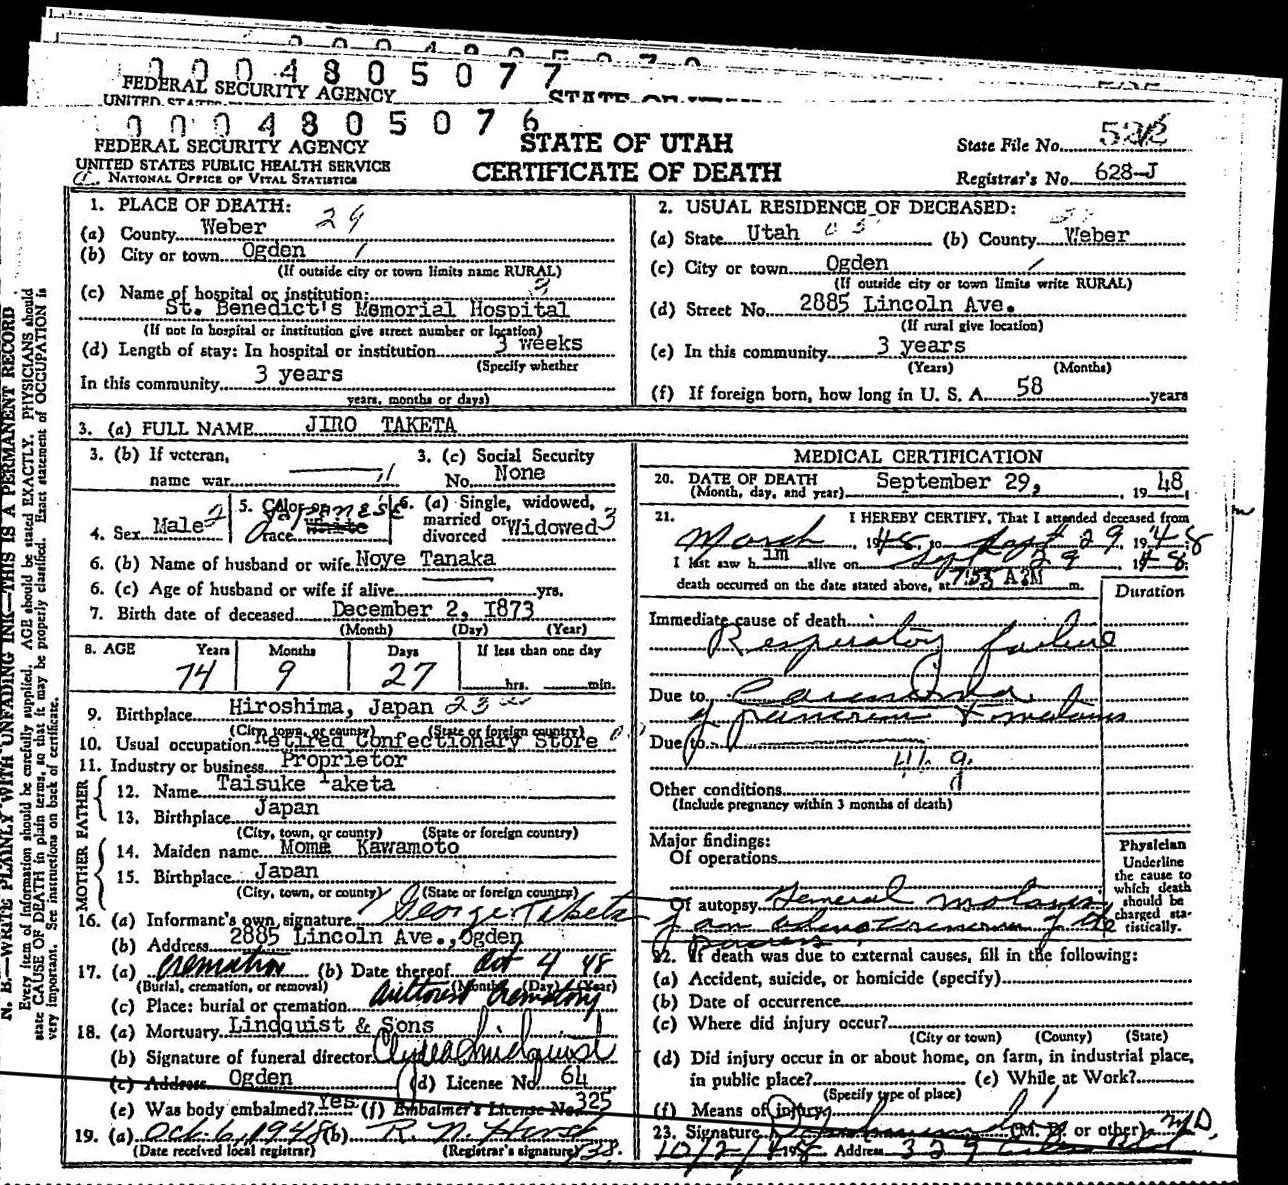 0004805077
FEDERAL SECURITY AGENCY
0004805076
FEDERAL SECURITY AGENCY
UNITED STATES PUBLIC HEALTH SERVICE
NATIONAL OFFICE OF VITAL STATISTICS
STATE OF UTAH
CERTIFICATE OF DEATH
State File No.
Registrar's No. 628-J
N. B.—WRITE PLAINLY WITH UNFADING INK—THIS IS A PERMANENT RECORD
Every item of information should be carefully supplied. AGE should be stated EXACTLY. PHYSICIANS should
state CAUSE OF DEATH in plain terms, so that it may be properly classified. Exact statement of OCCUPATION is
very important. See instructions on back of certificate.
1. PLACE OF DEATH: 29
(a) County Weber
(b) City or town Ogden
(If outside city or town limits name RURAL)
(c) Name of hospital or institution: 3
St. Benedict's Memorial Hospital
(If not in hospital or institution give street number or location)
(d) Length of stay: In hospital or institution 3 weeks
(Specify whether
In this community 3 years
years, months or days)
2. USUAL RESIDENCE OF DECEASED:
(a) State Utah (b) County Weber
(c) City or town Ogden
(If outside city or town limits write RURAL)
(d) Street No. 2885 Lincoln Ave.
(If rural give location)
(e) In this community 3 years
(Years) (Months)
(f) If foreign born, how long in U. S. A. 58 years
3. (a) FULL NAME JIRO TAKETA
3. (b) If veteran,
name war
3. (c) Social Security
No. None
4. Sex Male 2
5. Color or race Japanese White
6. (a) Single, widowed, married or divorced Widowed 3
6. (b) Name of husband or wife Noye Tanaka
6. (c) Age of husband or wife if alive yrs.
7. Birth date of deceased December 2, 1873
(Month) (Day) (Year)
8. AGE Years Months Days If less than one day
74 9 27 hrs. min.
9. Birthplace Hiroshima, Japan
(City, town, or county) (State or foreign country)
10. Usual occupation Retired Confectionary Store
11. Industry or business Proprietor
FATHER
12. Name Taisuke Taketa
13. Birthplace Japan
(City, town, or county) (State or foreign country)
MOTHER
14. Maiden name Mome Kawamoto
15. Birthplace Japan
(City, town, or county) (State or foreign country)
16. (a) Informant's own signature George Taketa
(b) Address 2885 Lincoln Ave., Ogden
17. (a) Cremation (b) Date thereof Oct 4 48
(Burial, cremation, or removal) (Month) (Day) (Year)
(c) Place: burial or cremation Crematory
18. (a) Mortuary Lindquist & Sons
(b) Signature of funeral director Clyde Lindquist
(c) Address Ogden (d) License No. 64
(e) Was body embalmed? Yes (f) Embalmer's License No. 325
19. (a) Oct. 6, 1948 (b) R. N. Hirst
(Date received local registrar) (Registrar's signature)
MEDICAL CERTIFICATION
20. DATE OF DEATH
(Month, day, and year) September 29, 19 48
21. I HEREBY CERTIFY, That I attended deceased from
March, 1948, to Sept 29, 1948
I last saw him alive on Sept 29 1948
death occurred on the date stated above, at 7:55 A.M m.
Duration
Immediate cause of death
Respiratory failure
Due to Carcinoma
of
Due to
Other conditions
(Include pregnancy within 3 months of death)
Major findings:
Of operations
Of autopsy General
Physician
Underline
the cause to
which death
should be
charged sta-
tistically.
22. If death was due to external causes, fill in the following:
(a) Accident, suicide, or homicide (specify)
(b) Date of occurrence
(c) Where did injury occur?
(City or town) (County) (State)
(d) Did injury occur in or about home, on farm, in industrial place,
in public place? (e) While at Work?
(Specify type of place)
(f) Means of injury
23. Signature (M. D. or other) M.D.
10/2/48 Address 329